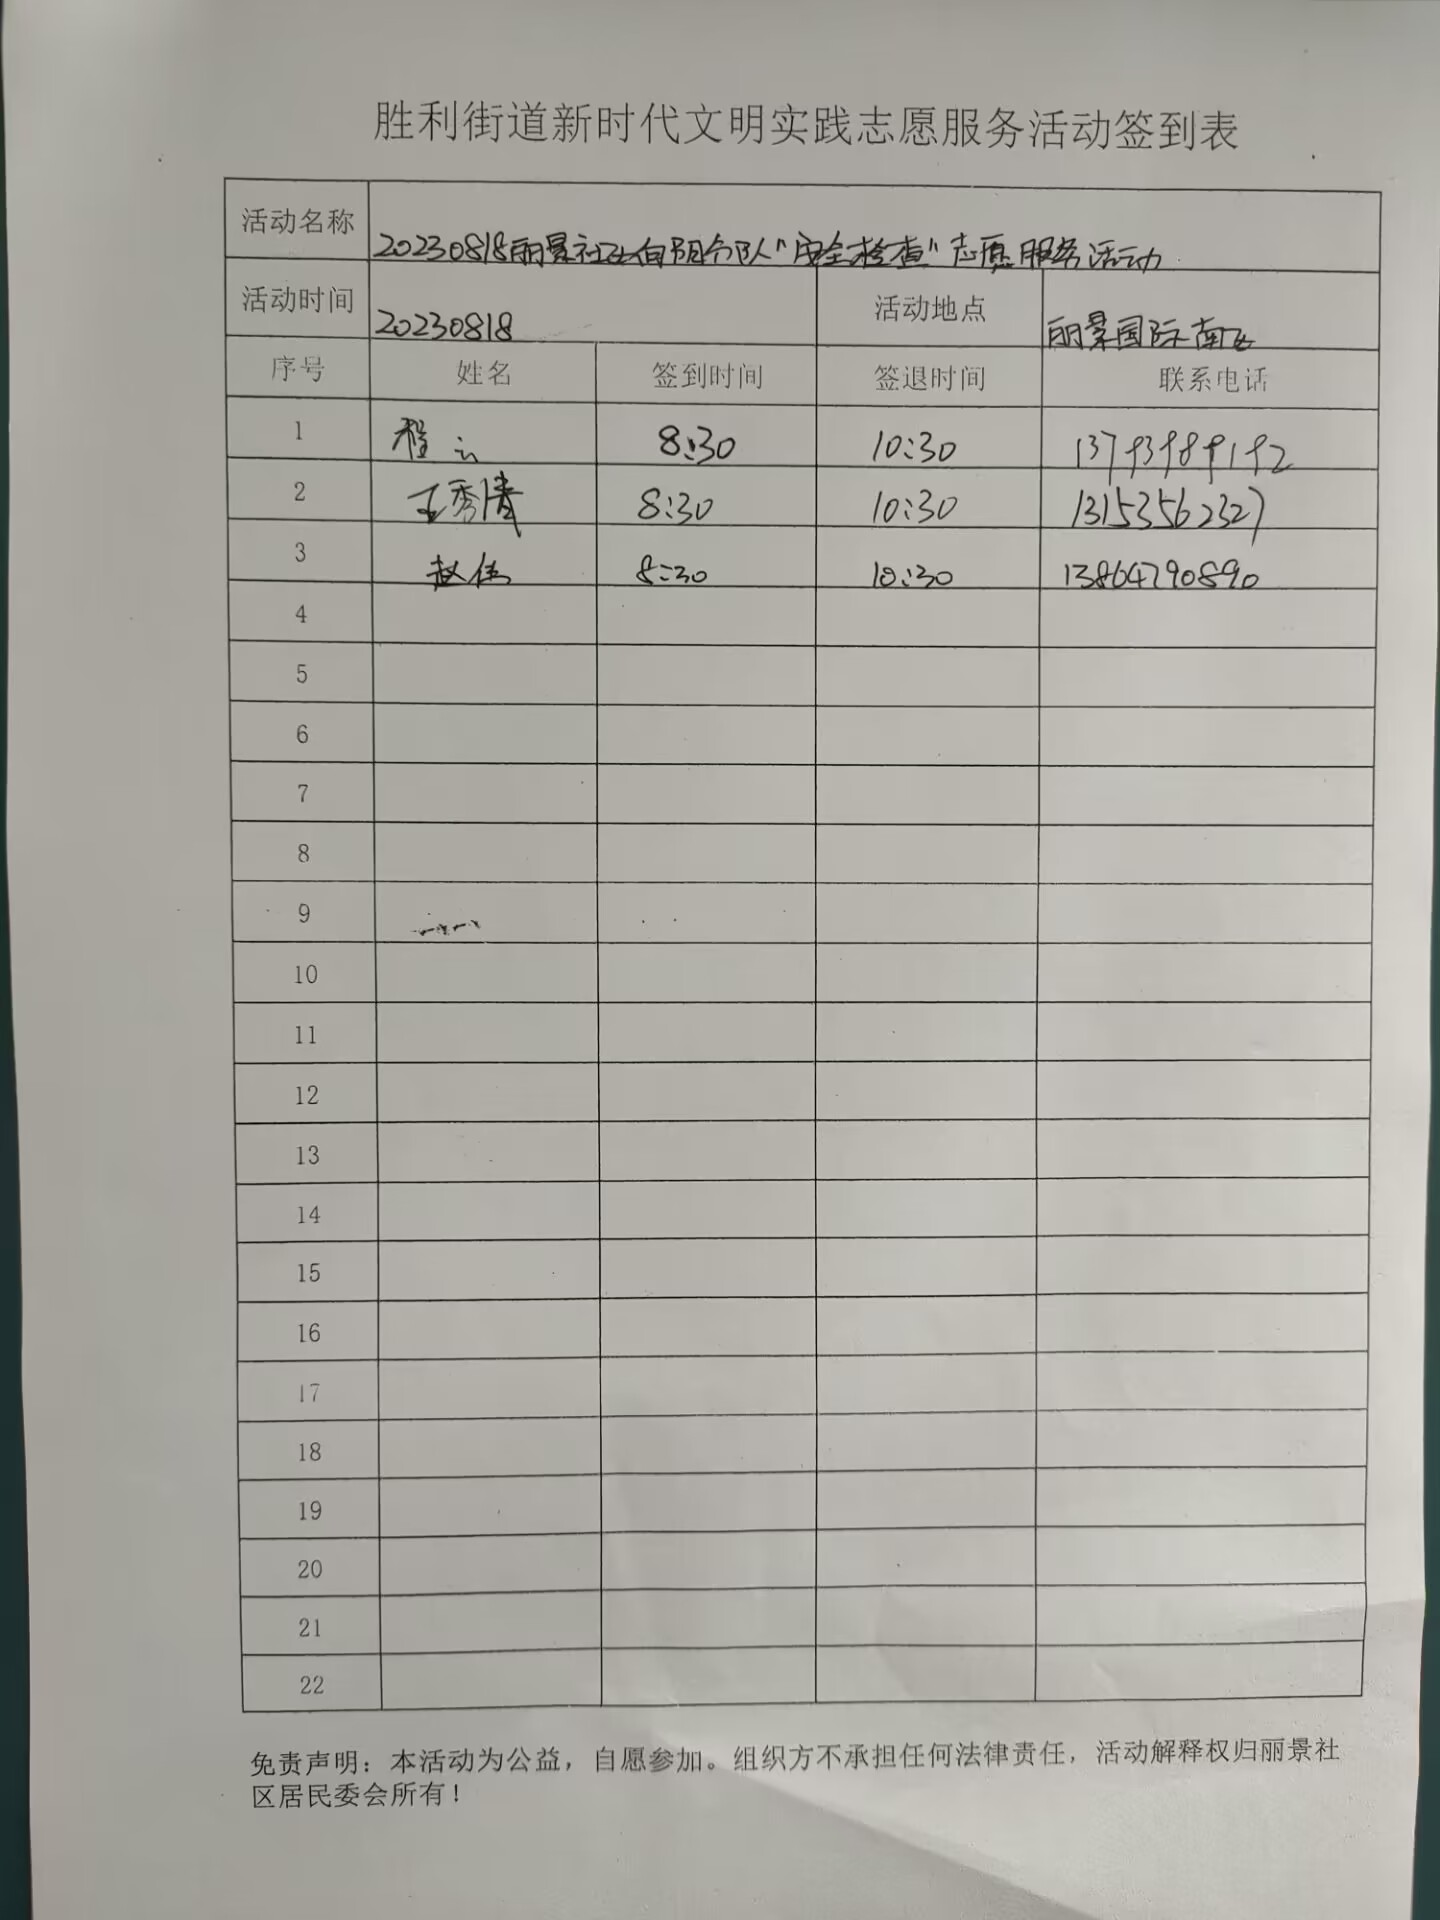 胜利街道新时代文明实践志愿服务活动签到表
活动名称 20230818丽景社区向阳分队"安全检查"志愿服务活动
活动时间 20230818 活动地点 丽景国际南区
序号 姓名 签到时间 签退时间 联系电话
1 程云 8:30 10:30 13793989192
2 王秀清 8:30 10:30 13153562327
3 赵伟 8:30 10:30 13864790890
4
5
6
7
8
9
10
11
12
13
14
15
16
17
18
19
20
21
22
免责声明：本活动为公益，自愿参加。组织方不承担任何法律责任，活动解释权归丽景社
区居民委会所有！